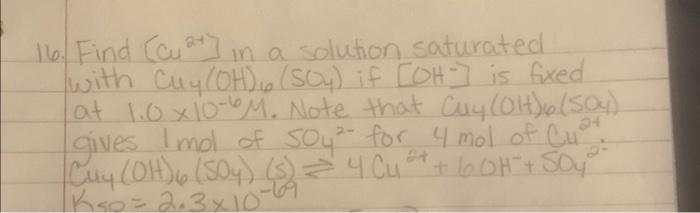 16. Find [Cu²⁺] in a solution saturated
with Cu₄(OH)₆(SO₄) if [OH⁻] is fixed
at 1.0 x10⁻⁶M. Note that Cu₄(OH)₆(SO₄)
gives 1mol of SO₄²⁻ for 4 mol of Cu²⁺.
Cu₄(OH)₆(SO₄)(s) ⇌ 4Cu²⁺ + 6OH⁻ + SO₄²⁻
Ksp = 2.3x10⁻⁶⁹